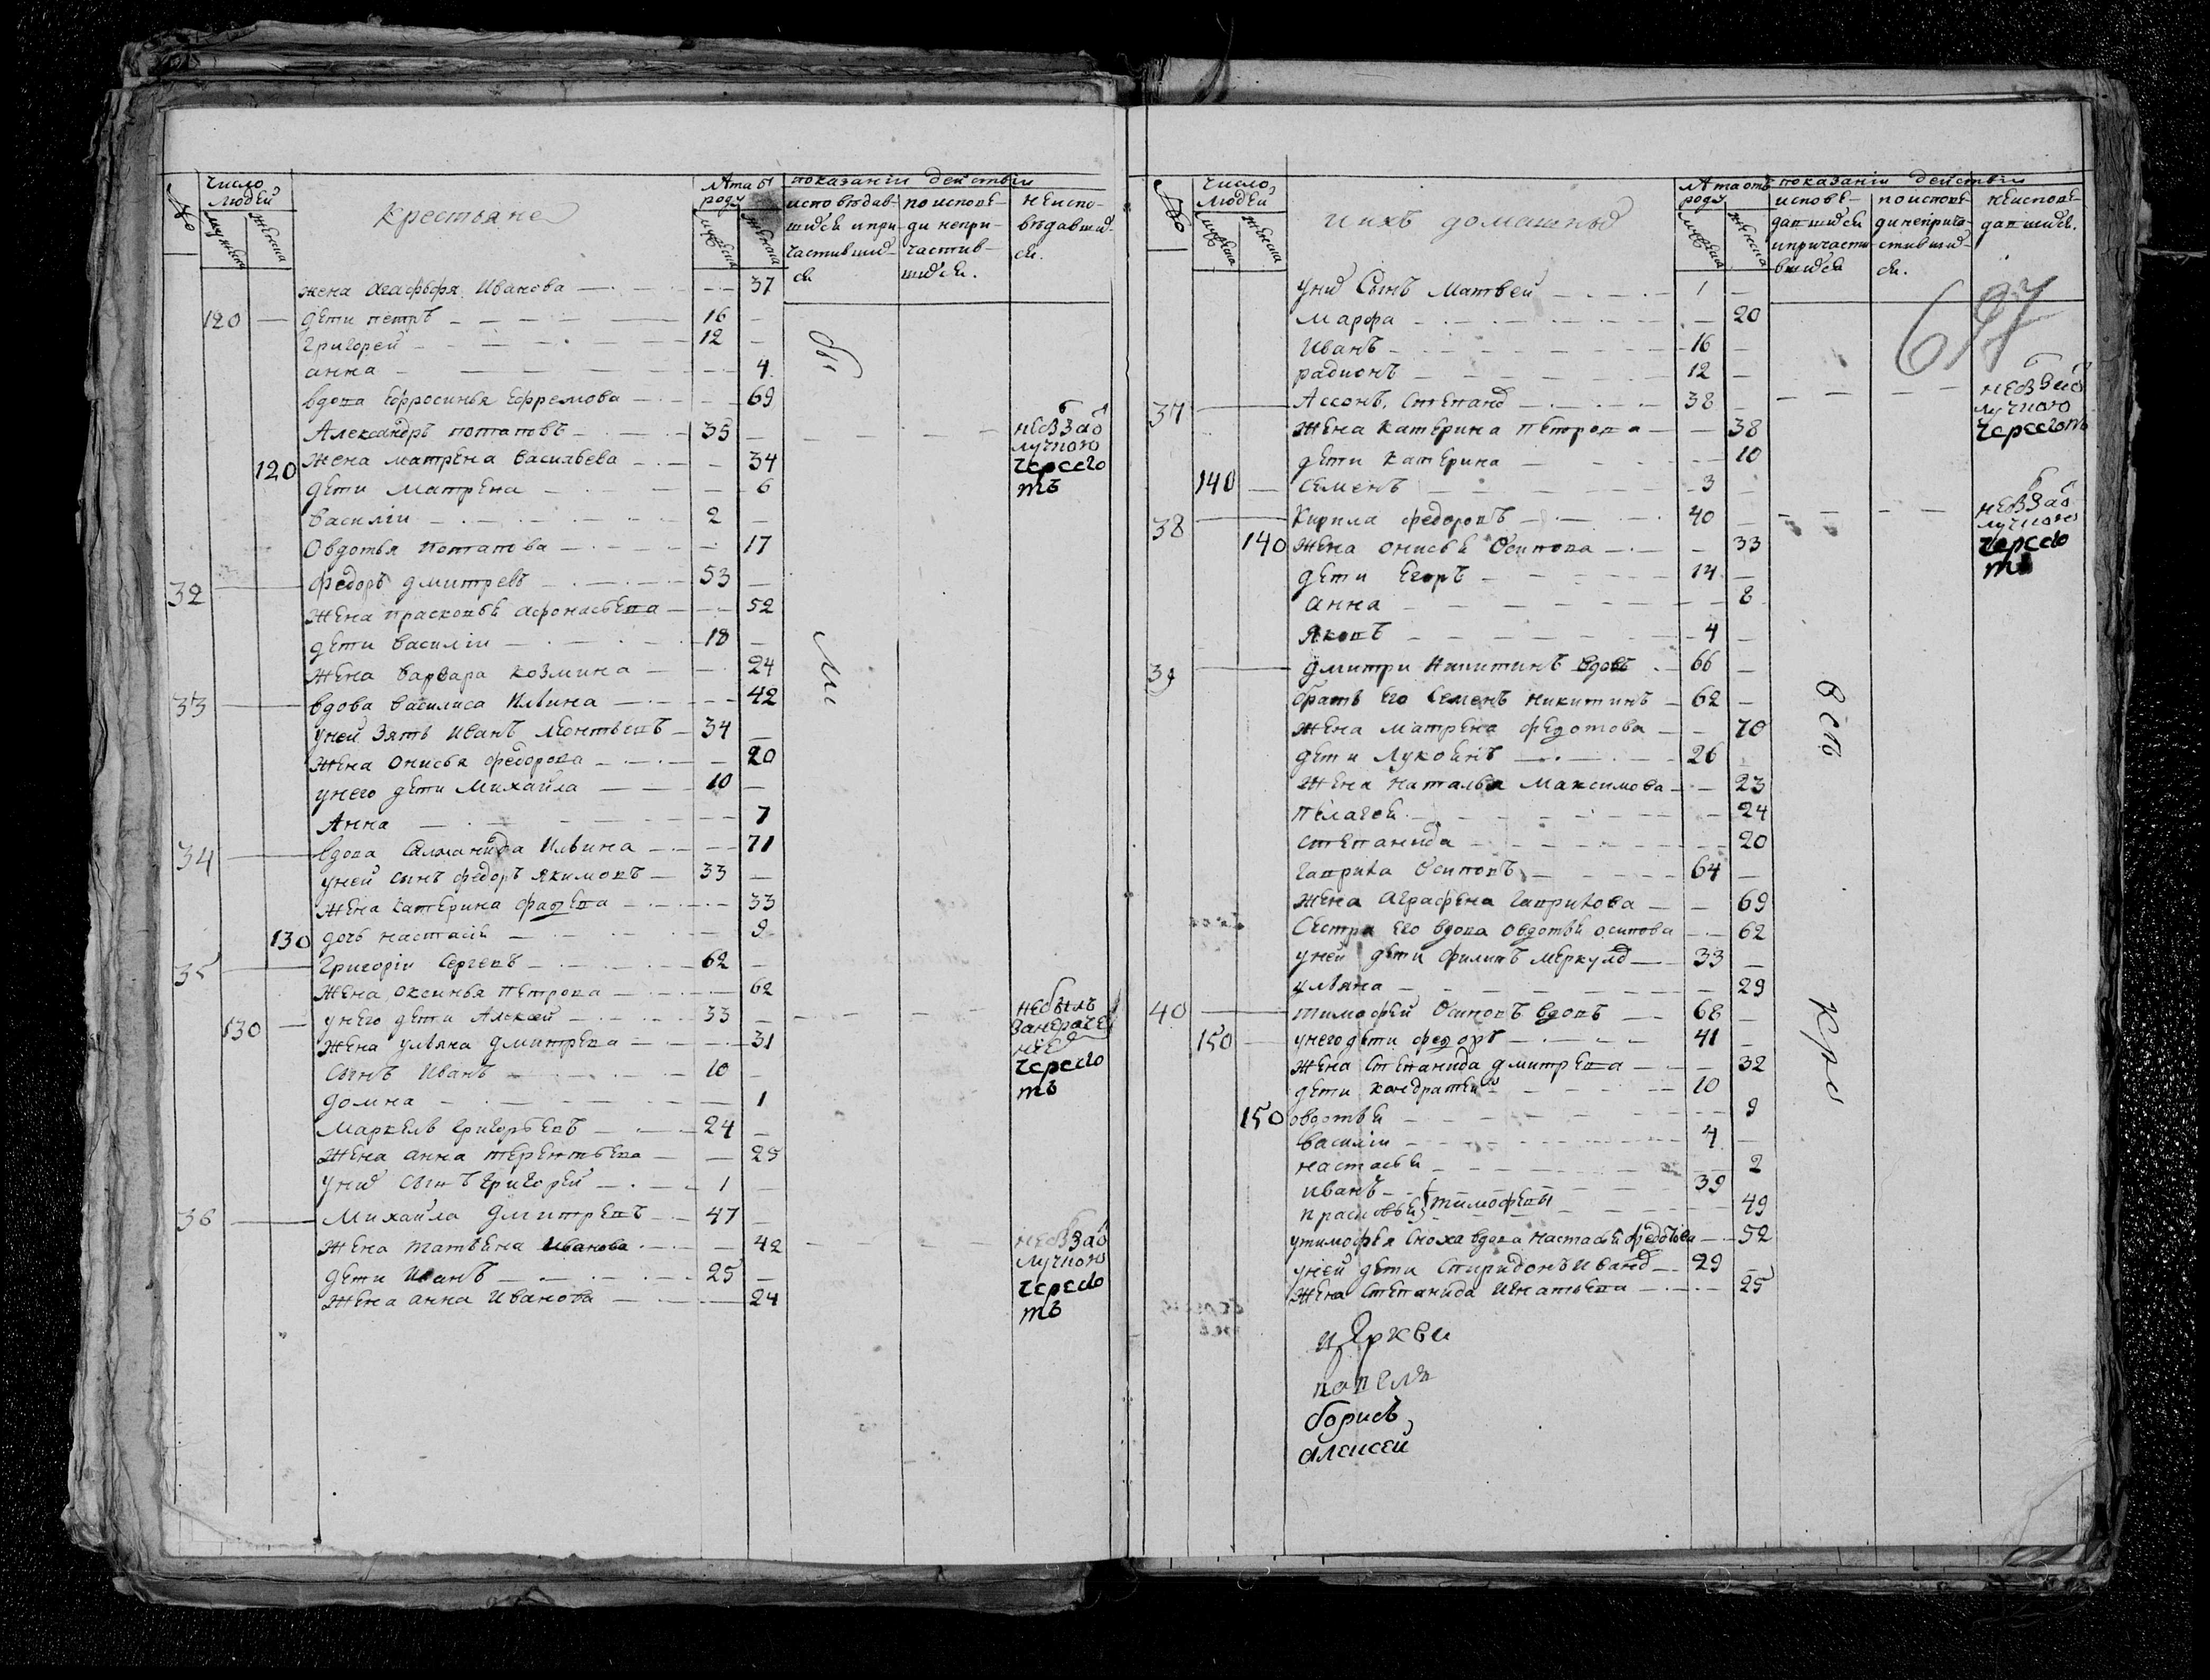 №
число людей
мужеска
женска
Крестьяне
Лѣта отъ роду
мужеска
женска
показаніи действия
исповѣдав-
шихся и при-
частивших-
ся
по испове-
ди непри-
частив-
шихся.
неиспо-
вѣдавших-
ся.
жена Агафья Иванова 37
120 дети петръ 16
Григорей 12
анна 4
вдова Ефросинья Ефремова 69
Александръ потаповъ 35
120 Жена матрена Васильева 34
дети Матрена 6
Василіи 2
Овдотья потапова 17
32 федоръ дмитревъ 53
Жена прасковья афонасьева 52
дети Василіи 18
Жена варвара козмина 24
33 вдова василиса Ильина 42
уней зять Иванъ леонтьевъ 34
Жена онисья федорова 20
унего дети Михаила 10
Анна 7
34 вдова Саломанида Ильина 71
уней сынъ федоръ якимовъ 33
Жена катерина фадеева 33
130 дочь настасія 9
35 Григоріи Сергевъ 62
Жена оксинья петрова 62
130 унего дети Алексей 33
Жена ульяна дмитрева 31
Сынъ Иванъ 10
домна 1
Маркелъ григорьевъ 24
Жена анна терентьева 25
уних сынъ григорей 1
36 Михаила дмитревъ 47
Жена татьяна Иванова 42
дети Иванъ 25
Жена анна Иванова 24
бы
ли
небзао
лучною
черсего
тъ
небылъ
черсего
тъ
небзао
лучною
черсего
тъ
№
число людей
мужеска
женска
и ихъ домашныя
Лѣта отъ роду
мужеска
женска
показаніи действия
испове-
давшися
и причасти-
вшися
по испове-
ди неприча-
стивших-
ся.
неиспове-
давшися.
697
уних Сынъ Матвей 1
марфа 20
Иванъ 16
радионъ 12
37 Ассонъ, Степанов 38
Жена катерина петрова 38
дети катерина 10
140 семенъ 3
38 Кирила федоровъ 40
140 Жена онисья Осипова 33
дети Егоръ 14
анна 8
Яковъ 4
39 дмитри Никитинъ вдовъ 66
братъ его Семенъ никитинъ 62
Жена матрена федотова 70
дети Лукоянъ 26
Жена наталья Максимова 23
пелагея 24
степанида 20
гаврила Осиповъ 64
Жена аграфена гаврилова 69
Сестра его вдова овдотья осипова 62
уней дети филипъ меркулов 33
ульяна 29
40 тимофей Осиповъ вдовъ 68
150 унего дети федоръ 41
Жена степанида дмитрева 32
дети кондратей 10
150 овдотья 9
василіи 4
настасья 2
иванъ 39
прасковья } тимофевы 49
утимофея сноха вдова настасья федотова 52
уней дети Спиридонъ Иванов 29
Жена степанида игнатьева 25
церкви
павелъ
борисъ
алексей
небзао
лучною
черсеготъ
небзао
лучною
черсего
тъ
Вси
кре